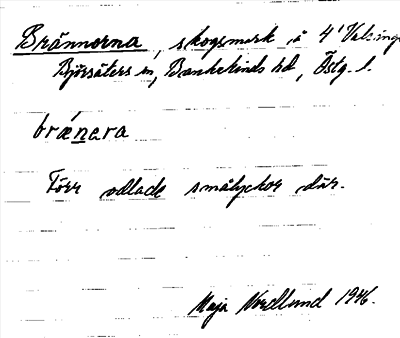 Brännorna, skogsmark i 4' Valsinge
Björsäters sn, Bankekinds hd, Östg. l.
brænara
Förr odlade smålyckor där.
Maja Nordlund 1946.